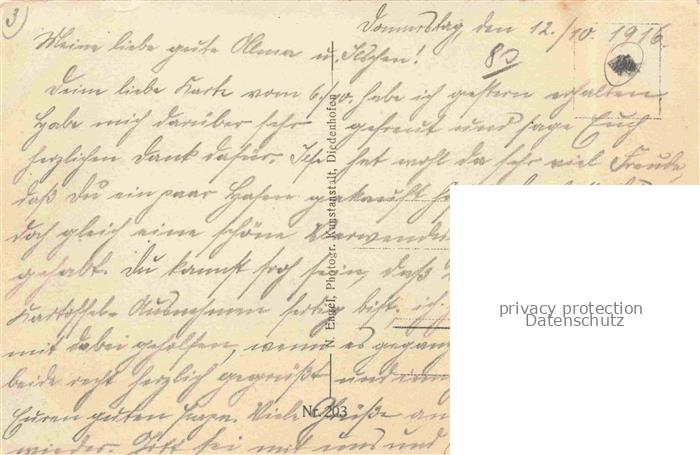 3)
Donnerstag, den 12./10. 1916.
Meine liebe gute Alma u. Ilschen!
83
Deine liebe Karte vom 6./10. habe ich gestern erhalten
habe mich darüber sehr gefreut und sage Euch
herzlichen Dank dafür. Ilse hat wohl da sehr viel Freude,
daß Du ein paar Hasen gekauft
doch gleich eine schöne Verwendu
gehabt. Du kannst froh sein, daß
Kartoffel-Ausnehmen fertig bist. ich
mit dabei geholfen, wenn es gegan
beide recht herzlich gegrüßt und
Euren guten Papa. Viele Grüße an
wieder. Gott sei mit uns und
N. Engel, Photogr. Kunstanstalt, Diedenhofen
Nr. 203
privacy protection
Datenschutz